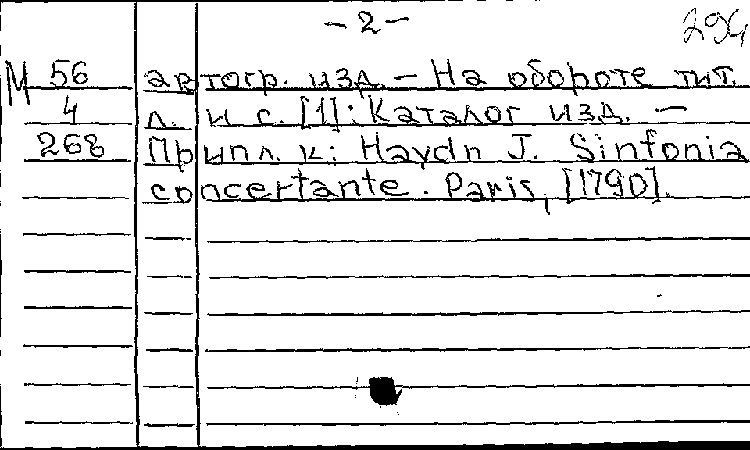 - 2 - 294
М 56 автогр. изд. - На обороте тит.
4 л. и с. [1]: Каталог изд. -
268 Припл. к: Haydn J. Sinfonia
concertante. Paris, [1790].